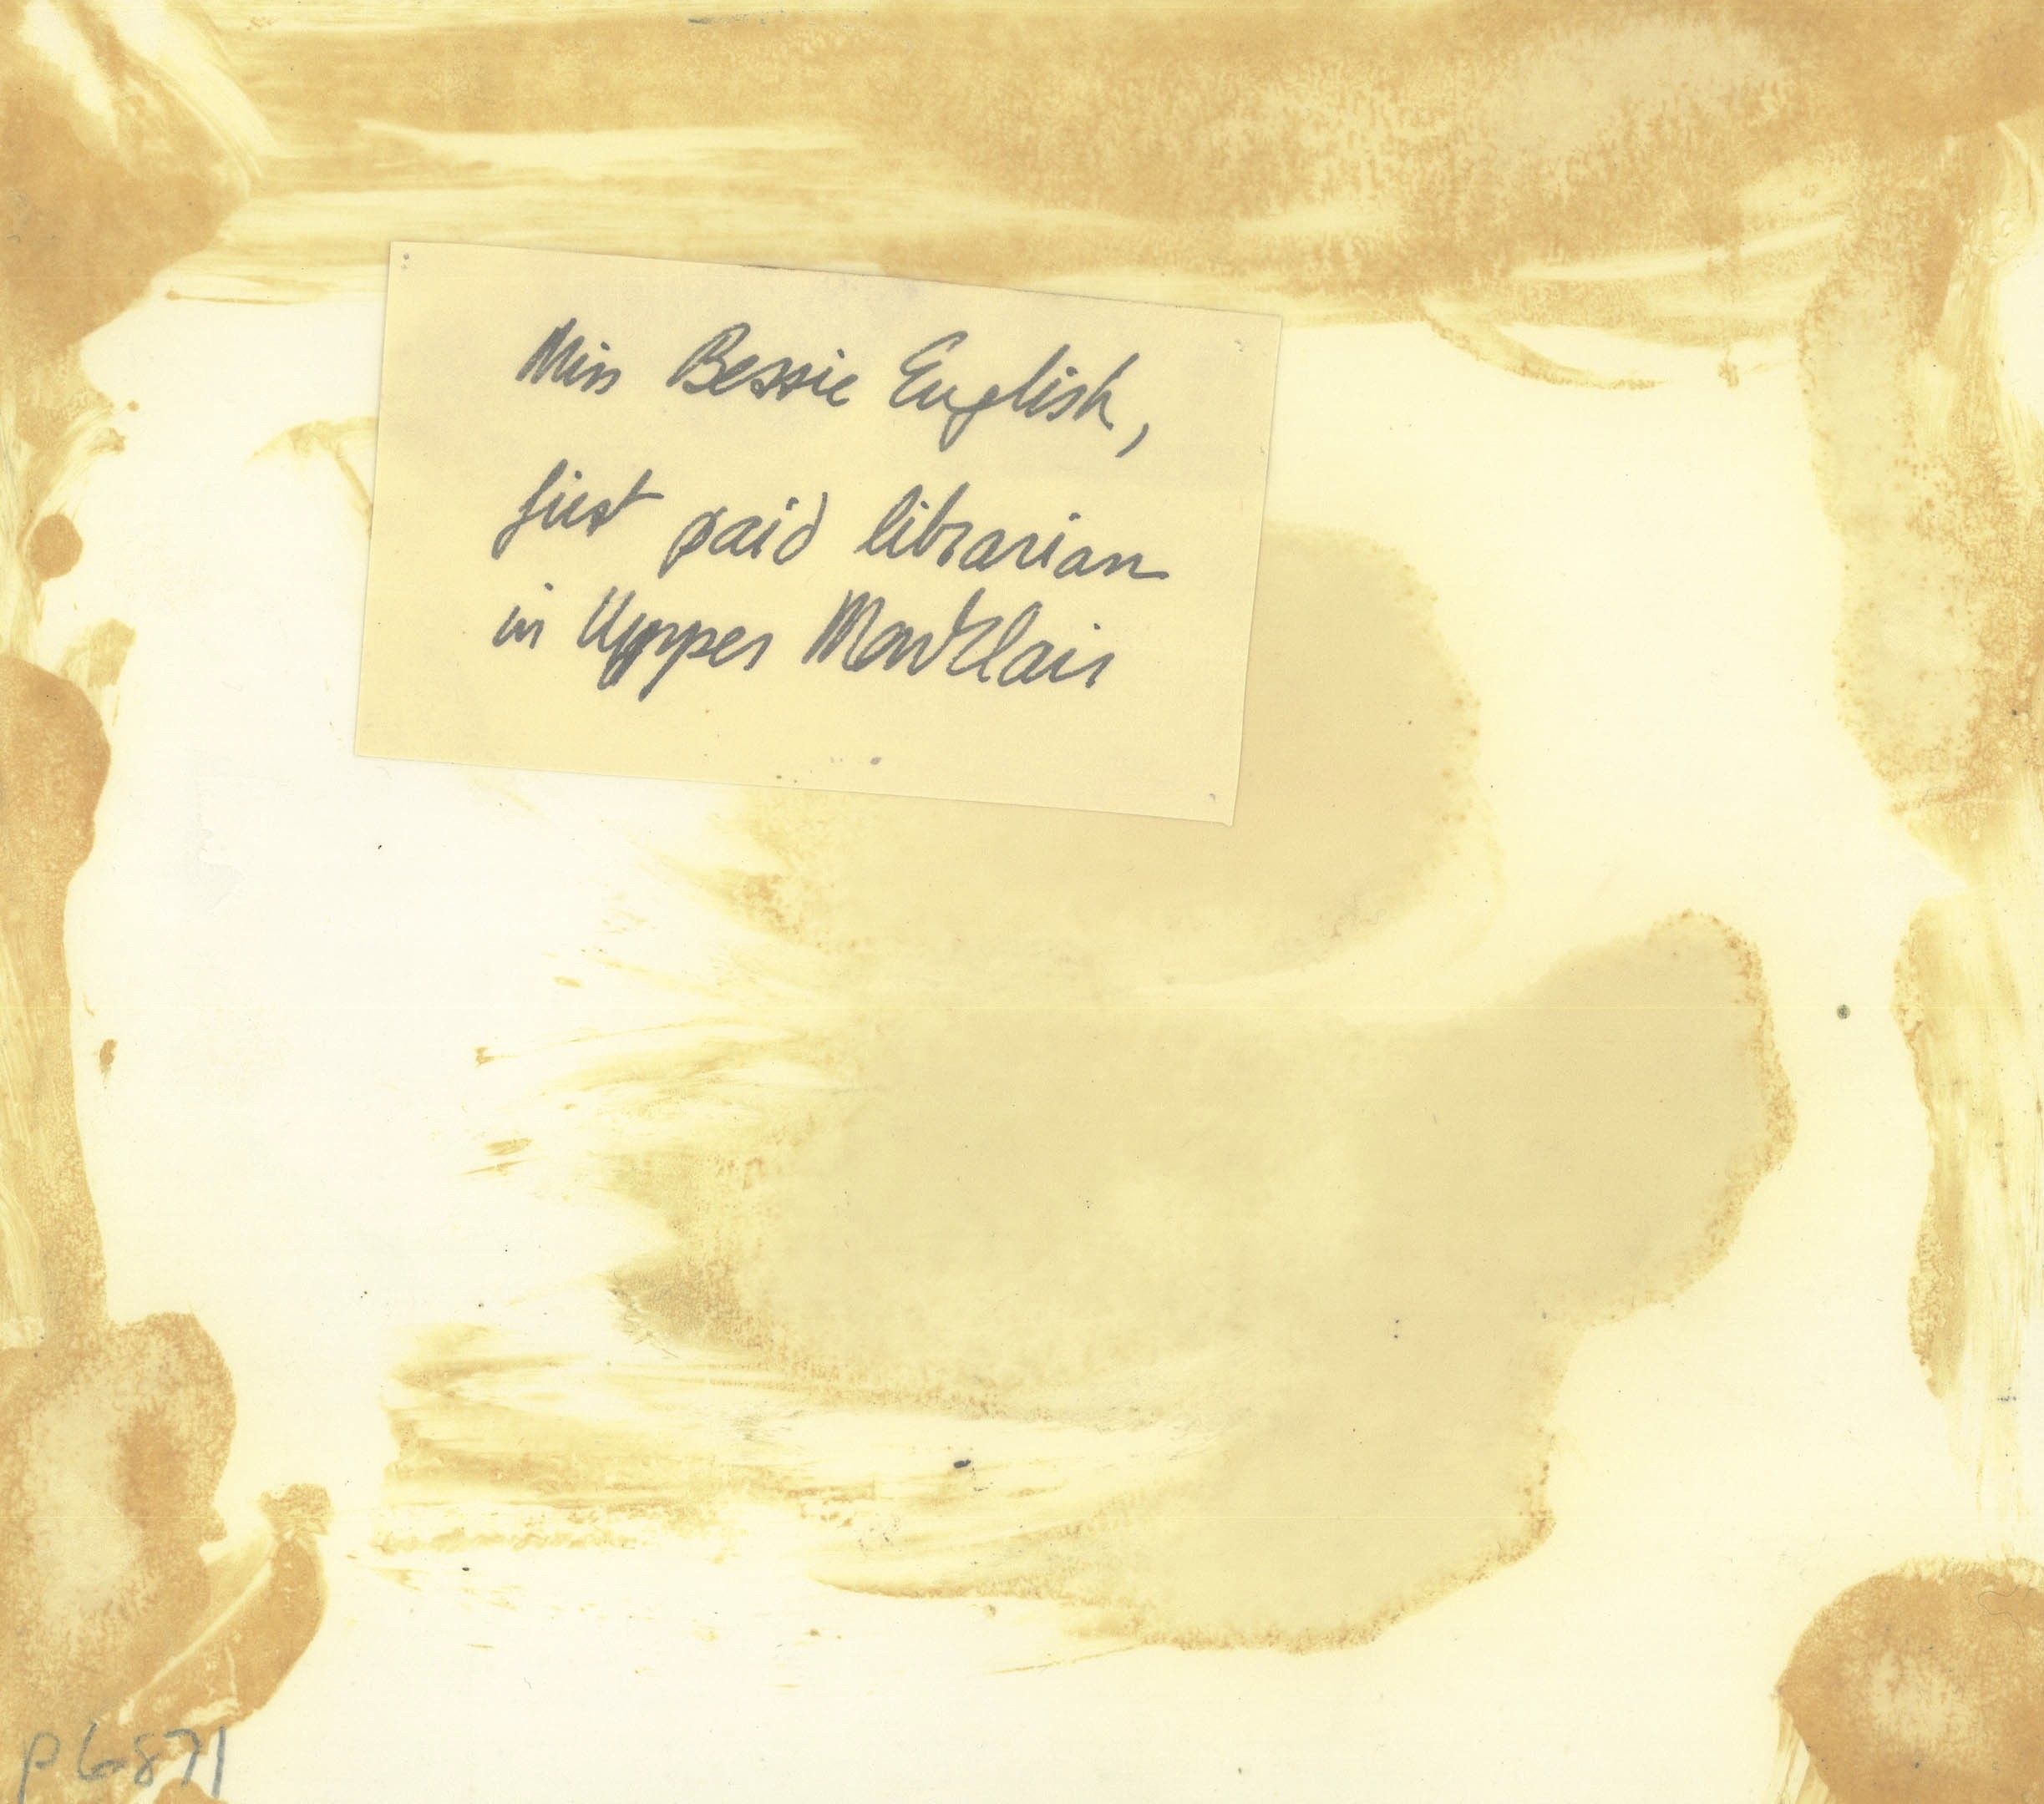 Miss Bessie English,
first paid librarian
in Upper Montclair
P6871